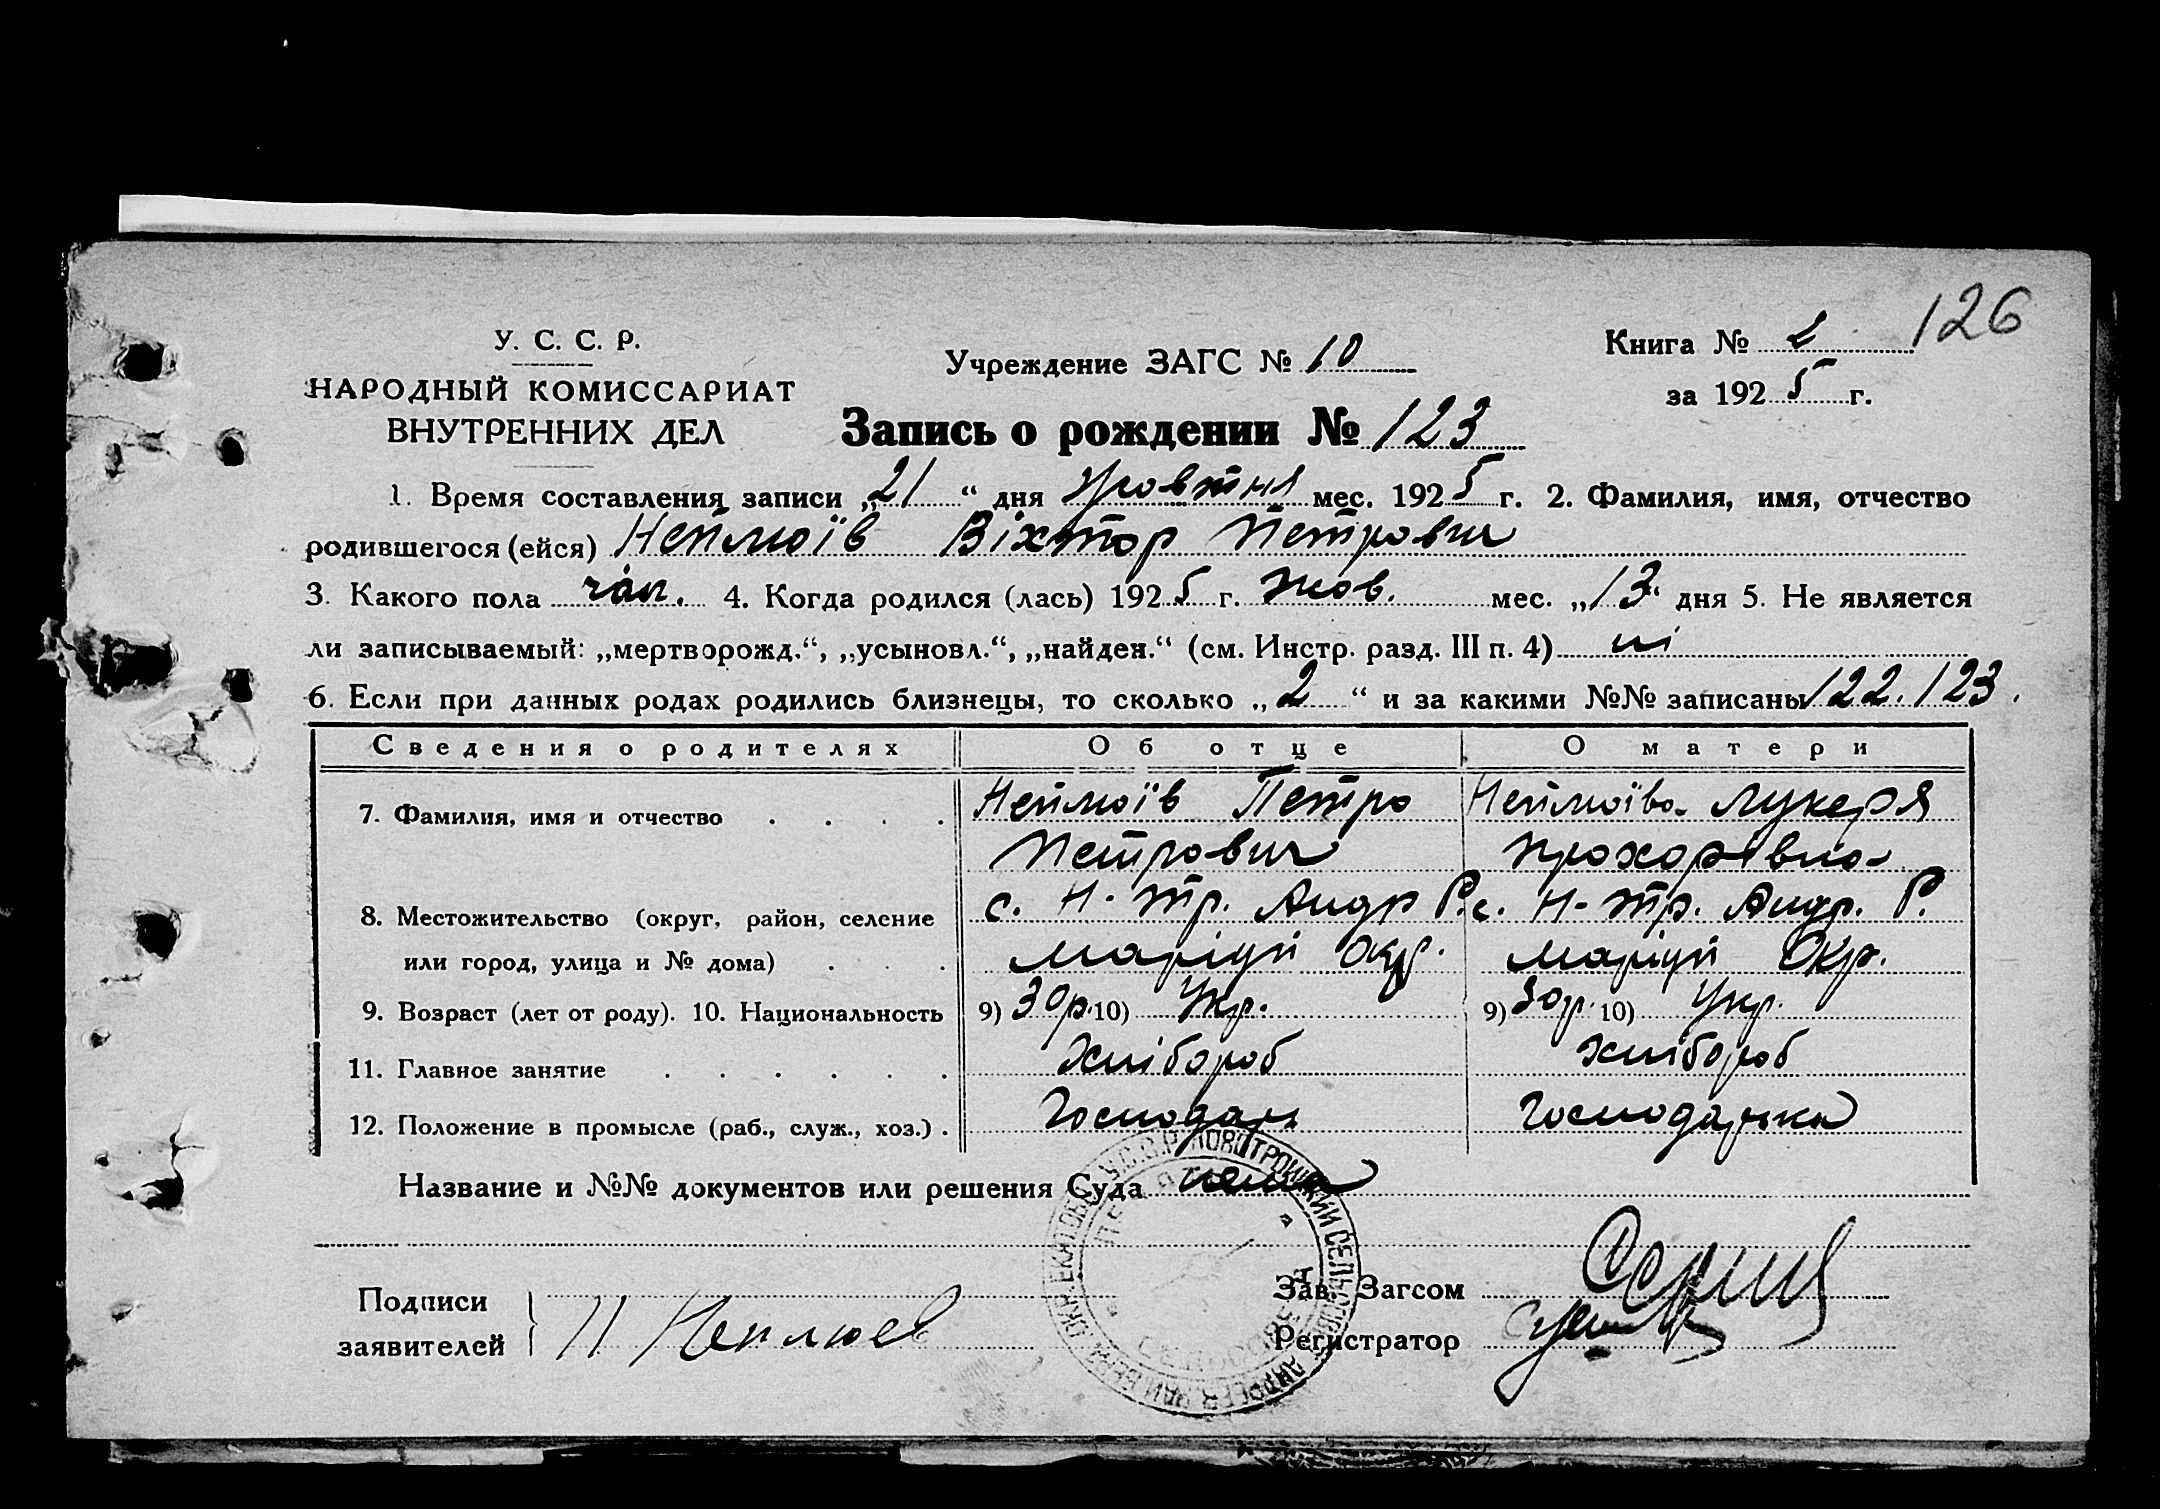 126
У. С. С. Р.
НАРОДНЫЙ КОМИССАРИАТ
ВНУТРЕННИХ ДЕЛ
Учреждение ЗАГС № 10
Книга № 2
за 1925 г.
Запись о рождении № 123
1. Время составления записи „21“ дня Жовтня мес. 1925 г. 2. Фамилия, имя, отчество
родившегося (ейся) Неплюїв Віктор Петрович
3. Какого пола чол. 4. Когда родился (лась) 1925 г. Жов. мес. „13“ дня 5. Не является
ли записываемый: „мертворожд.“, „усыновл.“, „найден.“ (см. Инстр. разд. III п. 4) ні
6. Если при данных родах родились близнецы, то сколько „2“ и за какими №№ записаны 122. 123.
Сведения о родителях Об отце О матери
7. Фамилия, имя и отчество . . . . Неплюїв Петро Неплюїва Лукеря
Петрович Прохорівна
8. Местожительство (округ, район, селение с. Н-Тр. Андр Р. с. Н-Тр. Андр. Р.
или город, улица и № дома) . . . Маріуп Окр. Маріуп Окр.
9. Возраст (лет от роду). 10. Национальность 9) 30р. 10) Укр. 9) 30р. 10) Укр.
11. Главное занятие . . . . . . Хлібороб Хлібороб
12. Положение в промысле (раб., служ., хоз.) . Господарь Господарька
Название и №№ документов или решения Суда нема
У.С.С.Р. НОВОТРОИЦКИЙ СЕЛЬ
Подписи
заявителей П Неплюев
Зав. Загсом
Регистратор